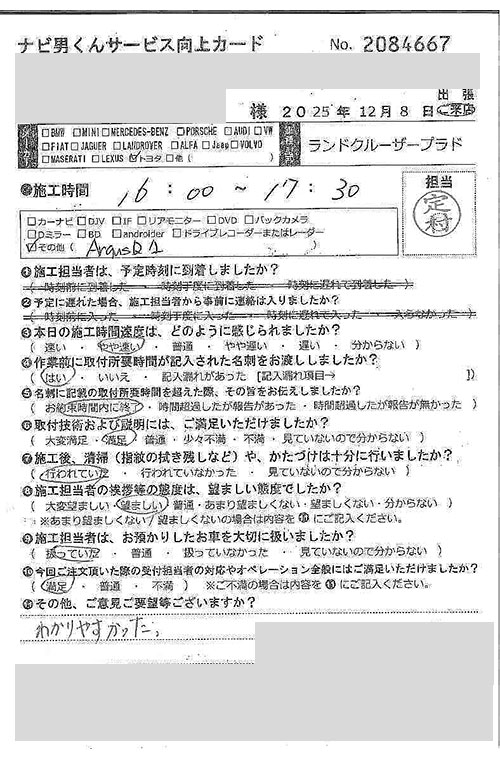 ナビ男くんサービス向上カード No. 2084667
出張
様 2025年 12月 8日 ご来店
□BMW □MINI □MERCEDES-BENZ □PORSCHE □AUDI □VW
□FIAT □JAGUER □LANDROVER □ALFA □Jeep □VOLVO
□MASERATI □LEXUS ☑トヨタ □他 ( )
ランドクルーザープラド
●施工時間 16:00 ~ 17:30
担当
□カーナビ □DJV □IF □リアモニター □DVD □バックカメラ
□Dミラー □BD □androider □ドライブレコーダーまたはレーダー
☑その他 ( ArgusD1 )
❶施工担当者は、予定時刻に到着しましたか?
( 時刻前に到着した ・ 時刻丁度に到着した ・ 時刻に遅れて到着した )
❷予定に遅れた場合、施工担当者から事前に連絡は入りましたか?
( 時刻前に入った ・ 時刻丁度に入った ・ 時刻に遅れて入った ・ 入らなかった )
❸本日の施工時間速度は、どのように感じられましたか?
( 速い ・ やや速い ・ 普通 ・ やや遅い ・ 遅い ・ 分からない )
❹作業前に取付所要時間が記入された名刺をお渡ししましたか?
( はい ・ いいえ ・ 記入漏れがあった [記入漏れ項目→ ])
❺名刺に記載の取付所要時間を超えた際、その旨をお伝えしましたか?
( お約束時間内に終了 ・ 時間超過したが報告があった ・ 時間超過したが報告が無かった )
❻取付技術および説明には、ご満足いただけましたか?
( 大変満足 ・ 満足 ・ 普通 ・ 少々不満 ・ 不満 ・ 見ていないので分からない )
❼施工後、清掃(指紋の拭き残しなど)や、かたづけは十分に行いましたか?
( 行われていた ・ 行われていなかった ・ 見ていないので分からない )
❽施工担当者の挨拶等の態度は、望ましい態度でしたか?
( 大変望ましい ・ 望ましい ・ 普通 ・ あまり望ましくない ・ 望ましくない ・ 分からない )
※あまり望ましくない/望ましくないの場合は内容を⓫にご記入ください。
❾施工担当者は、お預かりしたお車を大切に扱いましたか?
( 扱っていた ・ 普通 ・ 扱っていなかった ・ 見ていないので分からない )
❿今回ご注文頂いた際の受付担当者の対応やオペレーション全般にはご満足いただけましたか?
( 満足 ・ 普通 ・ 不満 ) ※ご不満の場合は内容を⓫にご記入ください。
⓫その他、ご意見ご要望等ございますか?
わかりやすかった。